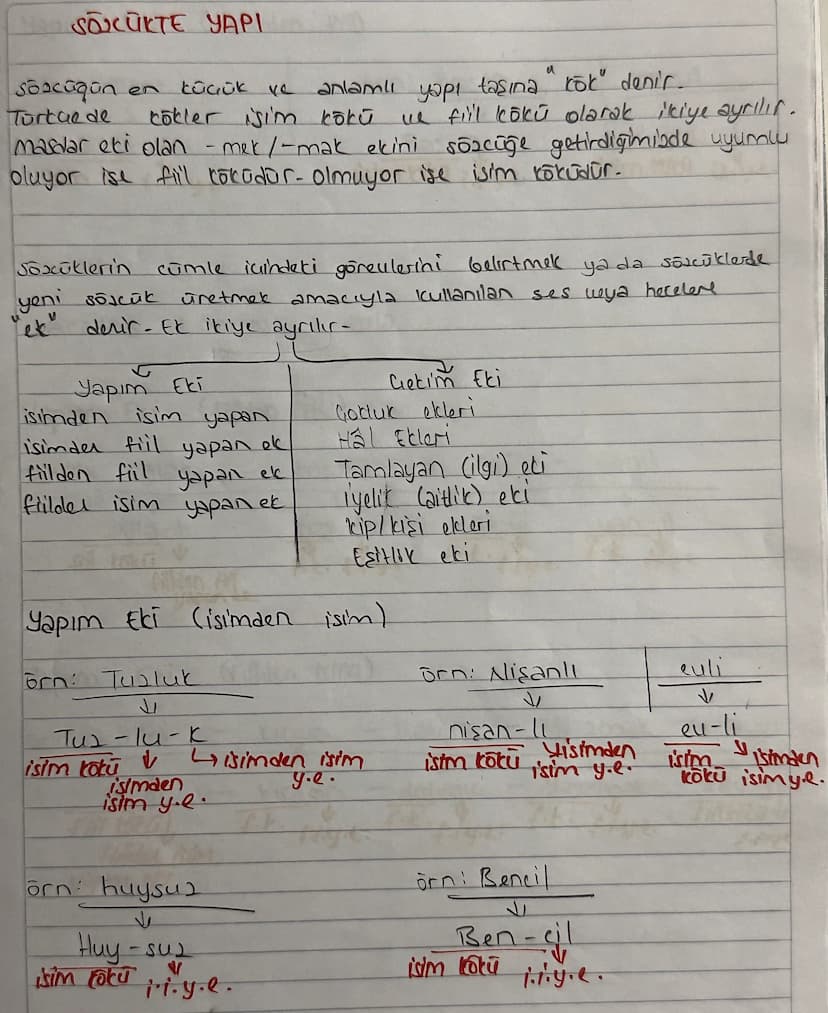 SÖZCÜKTE YAPI
sözcüğün en küçük ve anlamlı yapı taşına "kök" denir.
Türkçede kökler isim kökü ve fiil kökü olarak ikiye ayrılır.
mastar eki olan -mek/-mak ekini sözcüğe getirdiğimizde uyumlu
oluyor ise fiil köküdür- olmuyor ise isim köküdür.
sözcüklerin cümle içindeki görevlerini belirtmek ya da sözcüklerde
yeni sözcük üretmek amacıyla kullanılan ses veya hecelere
"ek" denir- Ek ikiye ayrılır-
Yapım Eki
isimden isim yapan
isimden fiil yapan ek
fiilden fiil yapan ek
fiilden isim yapan ek
Çekim Eki
Çokluk ekleri
Hâl Ekleri
Tamlayan (ilgi) eki
iyelik (aitlik) eki
kip/kişi ekleri
Eşitlik eki
Yapım Eki (isimden isim)
örn: Tuzluk
Tuz-lu-k
isim kökü isimden isim y.e.
isimden
isim y.e.
örn: Nişanlı
nişan-lı
isim kökü isimden
isim y.e.
evli
ev-li
isim kökü isimden
isim y.e.
örn: huysuz
Huy-suz
isim kökü i.i.y.e.
örn: Bencil
Ben-cil
isim kökü i.i.y.e.